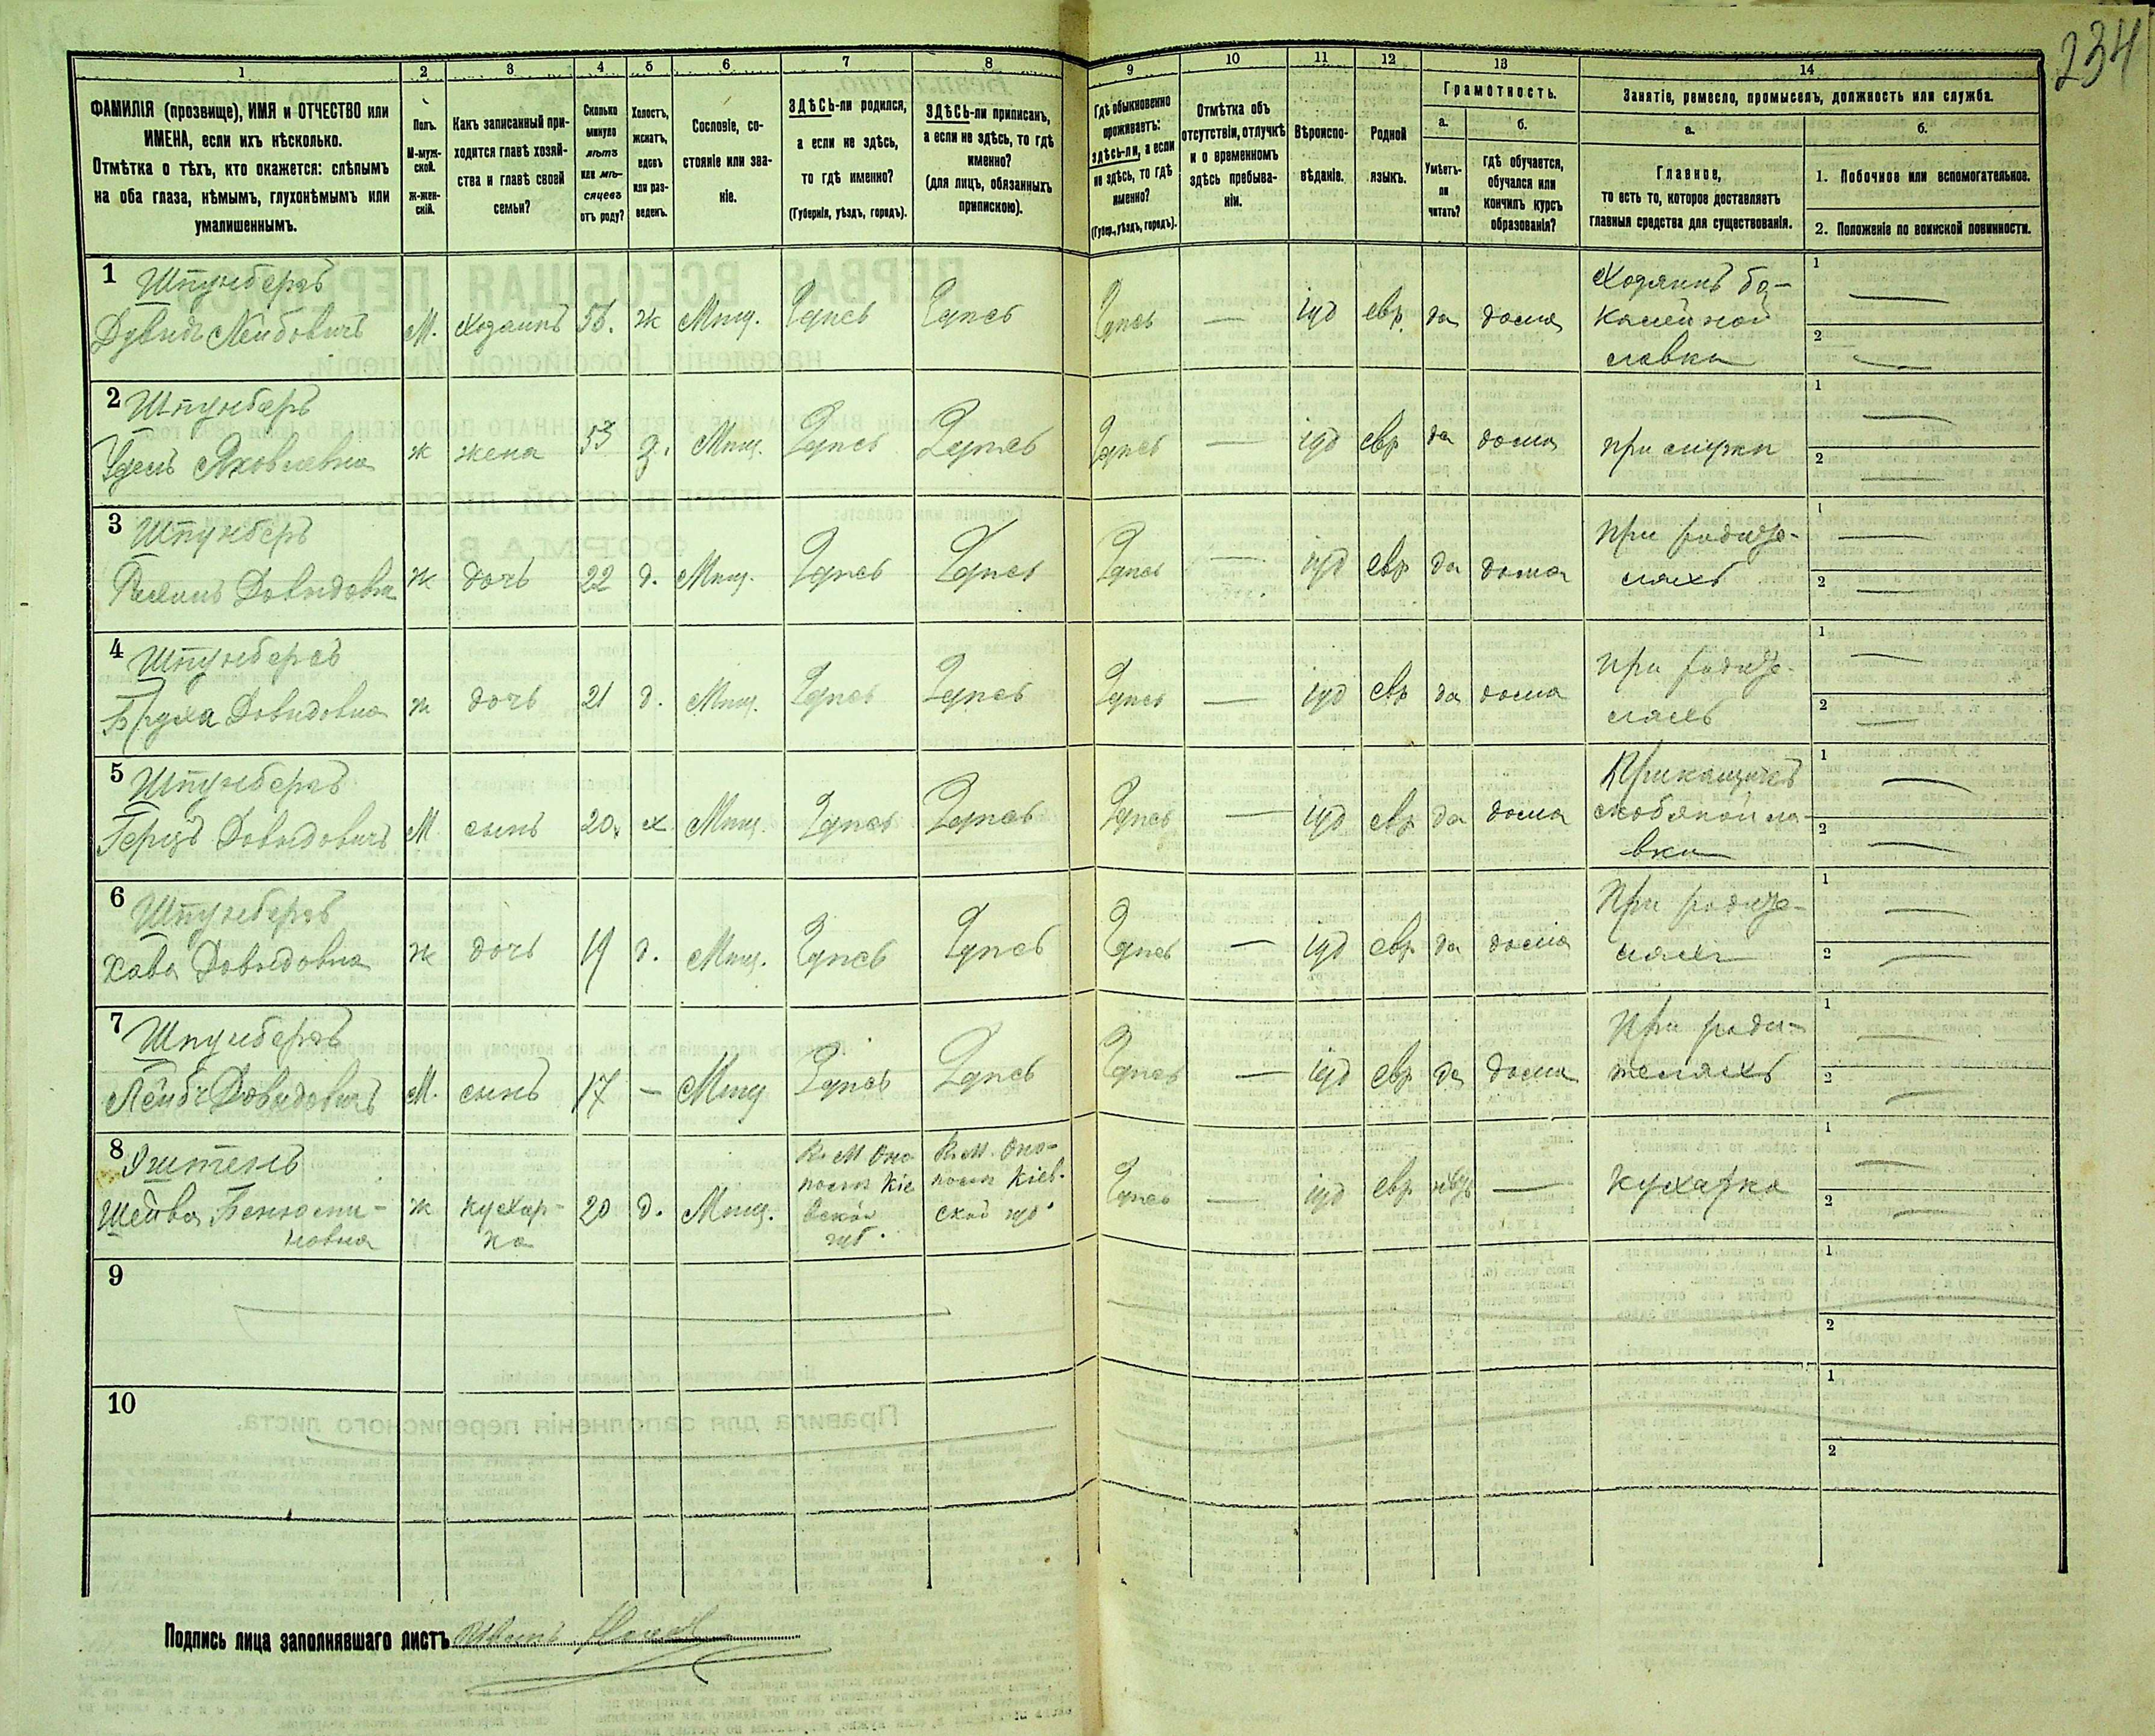 234
1 2 3 4 5 6 7 8 9 10 11 12 13 14
ФАМИЛІЯ (прозвище), ИМЯ и ОТЧЕСТВО или
ИМЕНА, если ихъ нѣсколько.
Отмѣтка о тѣхъ, кто окажется: слѣпымъ
на оба глаза, нѣмымъ, глухонѣмымъ или
умалишеннымъ.
Полъ.
М-муж-
ской.
ж-жен-
скій.
Какъ записанный при-
ходится главѣ хозяй-
ства и главѣ своей
семьи?
Сколько
минуло
лѣтъ
или мѣ-
сяцевъ
отъ роду?
Холостъ,
женатъ,
вдовъ
или раз-
веденъ.
Сословіе, со-
стояніе или зва-
ніе.
ЗДѢСЬ-ли родился,
а если не здѣсь,
то гдѣ именно?
(Губернія, уѣздъ, городъ).
ЗДѢСЬ-ли приписанъ,
а если не здѣсь, то гдѣ
именно?
(для лицъ, обязанныхъ
припискою).
Гдѣ обыкновенно
проживаетъ:
здѣсь-ли, а если
не здѣсь, то гдѣ
именно?
(Губер., уѣздъ, городъ).
Отмѣтка объ
отсутствіи, отлучкѣ
и о временномъ
здѣсь пребыва-
ніи.
Вѣроиспо-
вѣданіе.
Родной
языкъ.
Грамотность.
а.
Умѣетъ-
ли
читать?
б.
гдѣ обучается,
обучался или
кончилъ курсъ
образованія?
Занятіе, ремесло, промыселъ, должность или служба.
а.
Главное,
то есть то, которое доставляетъ
главныя средства для существованія.
б.
1. Побочное или вспомогательное.
2. Положеніе по воинской повинности.
1 Шпунбергъ
Лейбовичъ М. Хозяинъ ж Мещ. Здѣсь Здѣсь Здѣсь — іуд евр. да дома
Хозяинъ ба-
калейной
лавки
1 —
2 —
2 Шпунбергъ
Яковлевна ж жена 53 з. Мещ. Здѣсь Здѣсь Здѣсь — іуд евр да дома при мужи
1 —
2 —
3 Шпунбергъ
Довидовна ж дочь 22 д. Мещ. Здѣсь Здѣсь Здѣсь — іуд евр да дома
При родите-
ляхъ
1 —
2 —
4 Шпунбергъ
Бруха Довидовна ж дочь 21 д. Мещ. Здѣсь Здѣсь Здѣсь — іуд евр да дома
при родите-
ляхъ
1 —
2 —
5 Шпунбергъ
Герцъ Довидовичъ М сынъ 20. х Мещ. Здѣсь Здѣсь Здѣсь — іуд евр да дома
Прикащикъ
скобяной ла-
вки
1 —
2 —
6 Шпунбергъ
Хава Довидовна ж дочь 19 д. Мещ. Здѣсь Здѣсь Здѣсь — іуд евр да дома
При родите-
ляхъ
1 —
2 —
7 Шпунбергъ
Лейбъ Довидовичъ М. сынъ 17 — Мещ Здѣсь Здѣсь Здѣсь — іуд евр да дома
При роди-
теляхъ
1 —
2 —
8
Бенюми-
новна ж кухар-
ка 20 д. Мещ.
Кіе
вской
губ.
Кіев-
ской губ.
Здѣсь — іуд евр — Кухарка
1 —
2 —
9
1
2
10
1
2
Подпись лица заполнявшаго листъ